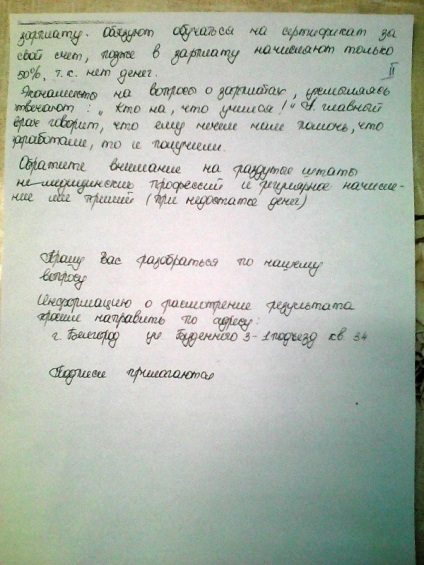 зарплату. Обязуют обучаться на сертификат за
свой счет, позже в зарплату начисляют только
50%, т.к. нет денег.
II
Экономисты на вопросы о зарплатах, ухмыляясь
отвечают: „Кто на, что учился!" А главный
врач говорит, что ему нечем нам помочь, что
заработали, то и получили.
Обратите внимание на раздутые штаты
не медицинских профессий и регулярное начисле-
ние им премий (при недостатке денег)
Прошу Вас разобраться по нашему
вопросу
Информацию о результата
просим направить по адресу:
г. Белгород ул Буденного 3-1 подъезд кв 34
Подписи прилагаются